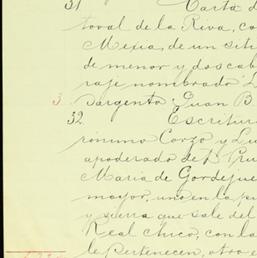 31 Carta d
toval de la Riva, co
Mexia, de un siti
de menor y dos cab
raje nombrado L
3. Sargento, Juan B
32 Escritur
rónimo Corzo y Lu
apoderado de D Pru
Maria de Gordejue
mayor, uno en la pu
y sierra que sale del
Real chico, con la
le pertenecen, otro e